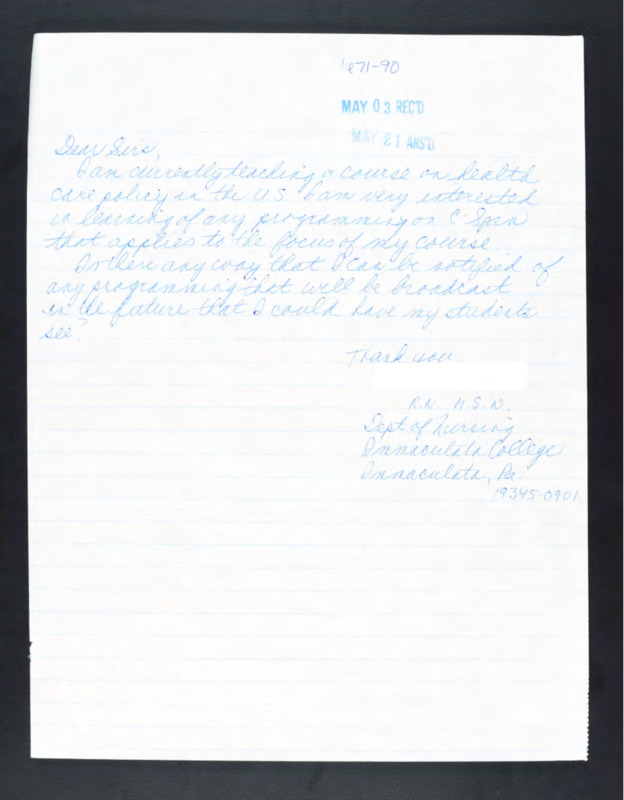 1471-90
MAY 03 REC'D
MAY 21 ANS'D
Dear Sirs,
I am currently teaching a course on health
care policy in the U.S. I am very interested
in learning of any programming on C-Span
that applies to the focus of my course.
Is there any way that I can be notified of
any programming that will be broadcast
in the future that I could have my students
see?
Thank you.
R.N. M.S.N.
Dept of Nursing
Immaculata College
Immaculata, Pa.
19345-0901